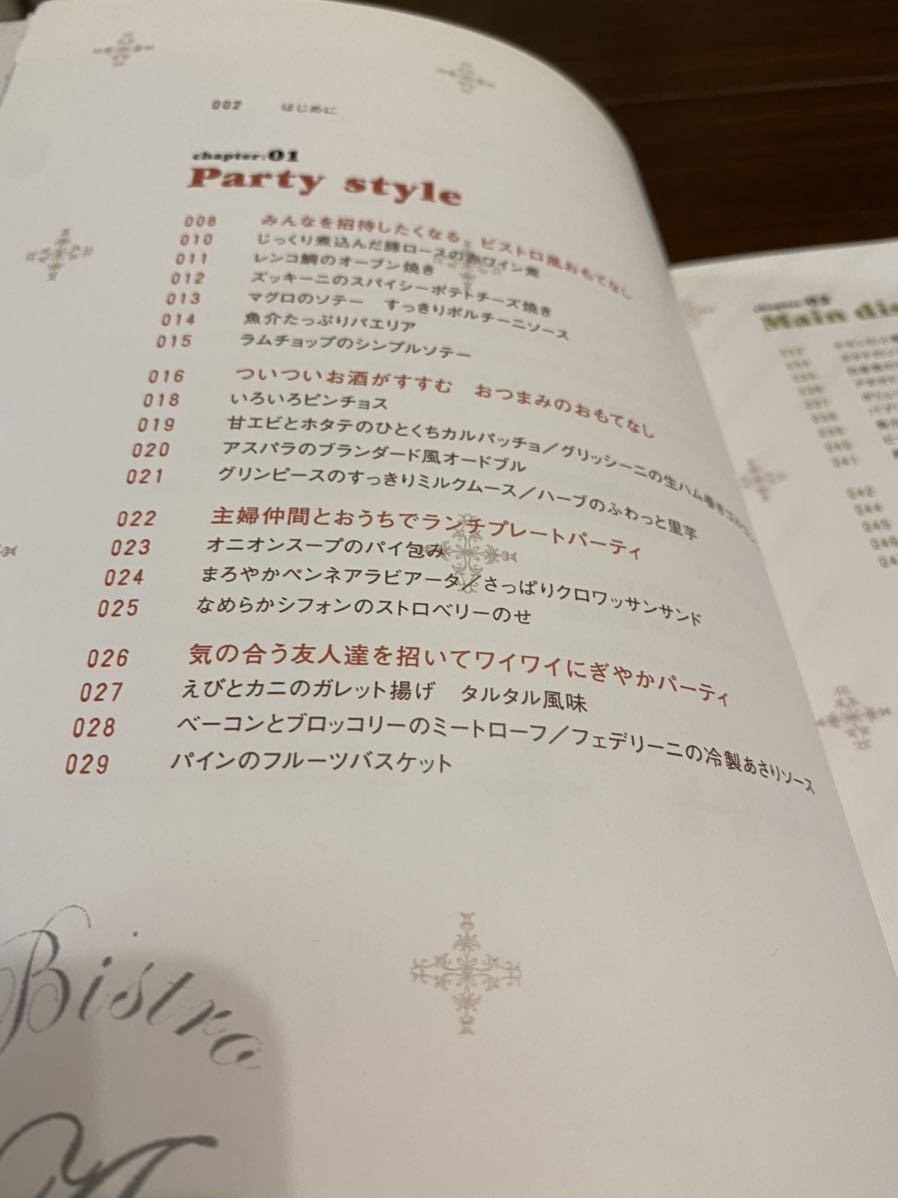 002 はじめに
chapter:01
Party style
008 みんなを招待したくなる。ビストロ風おもてなし
010 じっくり煮込んだ豚ロースの赤ワイン煮
011 レンコ鯛のオーブン焼き
012 ズッキーニのスパイシーポテトチーズ焼き
013 マグロのソテー すっきりポルチーニソース
014 魚介たっぷりパエリア
015 ラムチョップのシンプルソテー
016 ついついお酒がすすむ おつまみのおもてなし
018 いろいろピンチョス
019 甘エビとホタテのひとくちカルパッチョ／グリッシーニの生ハム巻き
020 アスパラのブランダード風オードブル
021 グリンピースのすっきりミルクムース／ハーブのふわっと里芋
022 主婦仲間とおうちでランチプレートパーティ
023 オニオンスープのパイ包み
024 まろやかペンネアラビアータ／さっぱりクロワッサンサンド
025 なめらかシフォンのストロベリーのせ
026 気の合う友人達を招いてワイワイにぎやかパーティ
027 えびとカニのガレット揚げ タルタル風味
028 ベーコンとブロッコリーのミートローフ／フェデリーニの冷製あさりソース
029 パインのフルーツバスケット
Bistro
Main